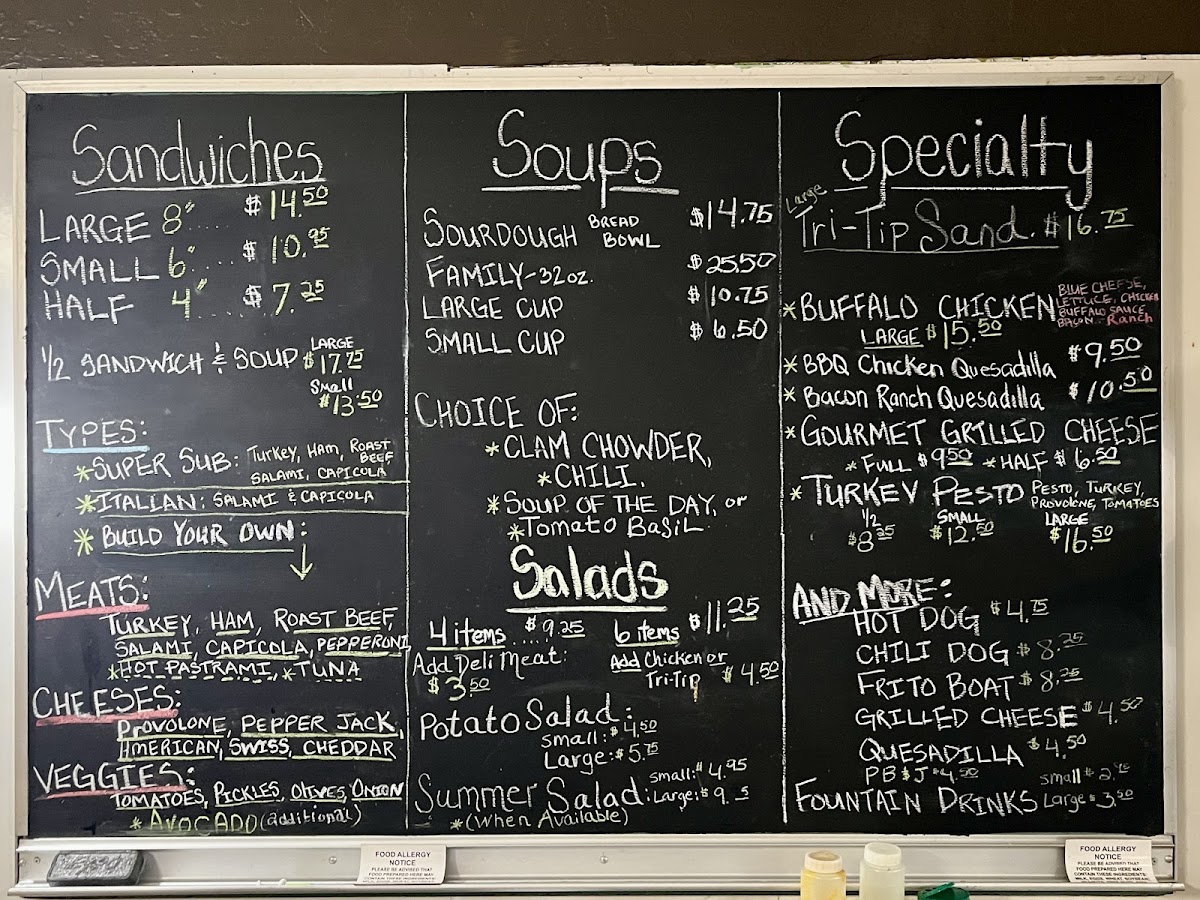 Sandwiches
LARGE 8" ..... $14.50
SMALL 6" ..... $10.95
HALF 4" ..... $7.25
1/2 SANDWICH & SOUP LARGE $17.75
Small $13.50
TYPES:
*SUPER SUB: Turkey, Ham, Roast BEEF
SALAMI, CAPICOLA
*ITALIAN: SALAMI & CAPICOLA
*BUILD YOUR OWN:
MEATS:
TURKEY, HAM, ROAST BEEF,
SALAMI, CAPICOLA, PEPPERONI
*HOT PASTRAMI, *TUNA
CHEESES:
PROVOLONE, PEPPER JACK,
AMERICAN, SWISS, CHEDDAR
VEGGIES:
TOMATOES, PICKLES, OLIVES, ONION
*AVOCADO (additional)
Soups
SOURDOUGH BREAD BOWL $14.75
FAMILY-32oz. $25.50
LARGE CUP $10.75
SMALL CUP $6.50
CHOICE OF:
*CLAM CHOWDER,
*CHILI,
*SOUP OF THE DAY, or
*Tomato Basil
Salads
4 items .... $9.25 6 items $11.25
Add Deli Meat: $3.50
Add Chicken or Tri-Tip $4.50
Potato Salad:
Small: $4.50
Large: $5.75
Summer Salad: Small: $4.95
Large: $9.
*(When Available)
Specialty
Large
Tri-Tip Sand. $16.75
*BUFFALO CHICKEN
BLUE CHEESE,
LETTUCE, CHICKEN
BUFFALO SAUCE,
BACON Ranch
LARGE $15.50
*BBQ Chicken Quesadilla $9.50
*Bacon Ranch Quesadilla $10.50
*GOURMET GRILLED CHEESE
*FULL $9.50 *HALF $6.50
*TURKEY PESTO PESTO, TURKEY,
PROVOLONE, TOMATOES
1/2 $8.25 SMALL $12.50 LARGE $16.50
AND MORE:
HOT DOG $4.75
CHILI DOG $8.25
FRITO BOAT $8.25
GRILLED CHEESE $4.50
QUESADILLA $4.50
PB&J $4.50
FOUNTAIN DRINKS small $2.
Large $3.50
FOOD ALLERGY
NOTICE
PLEASE BE ADVISED THAT
FOOD PREPARED HERE MAY
CONTAIN THESE INGREDIENTS:
FOOD ALLERGY
NOTICE
PLEASE BE ADVISED THAT
FOOD PREPARED HERE MAY
CONTAIN THESE INGREDIENTS:
MILK, EGGS, WHEAT, SOYBEAN,